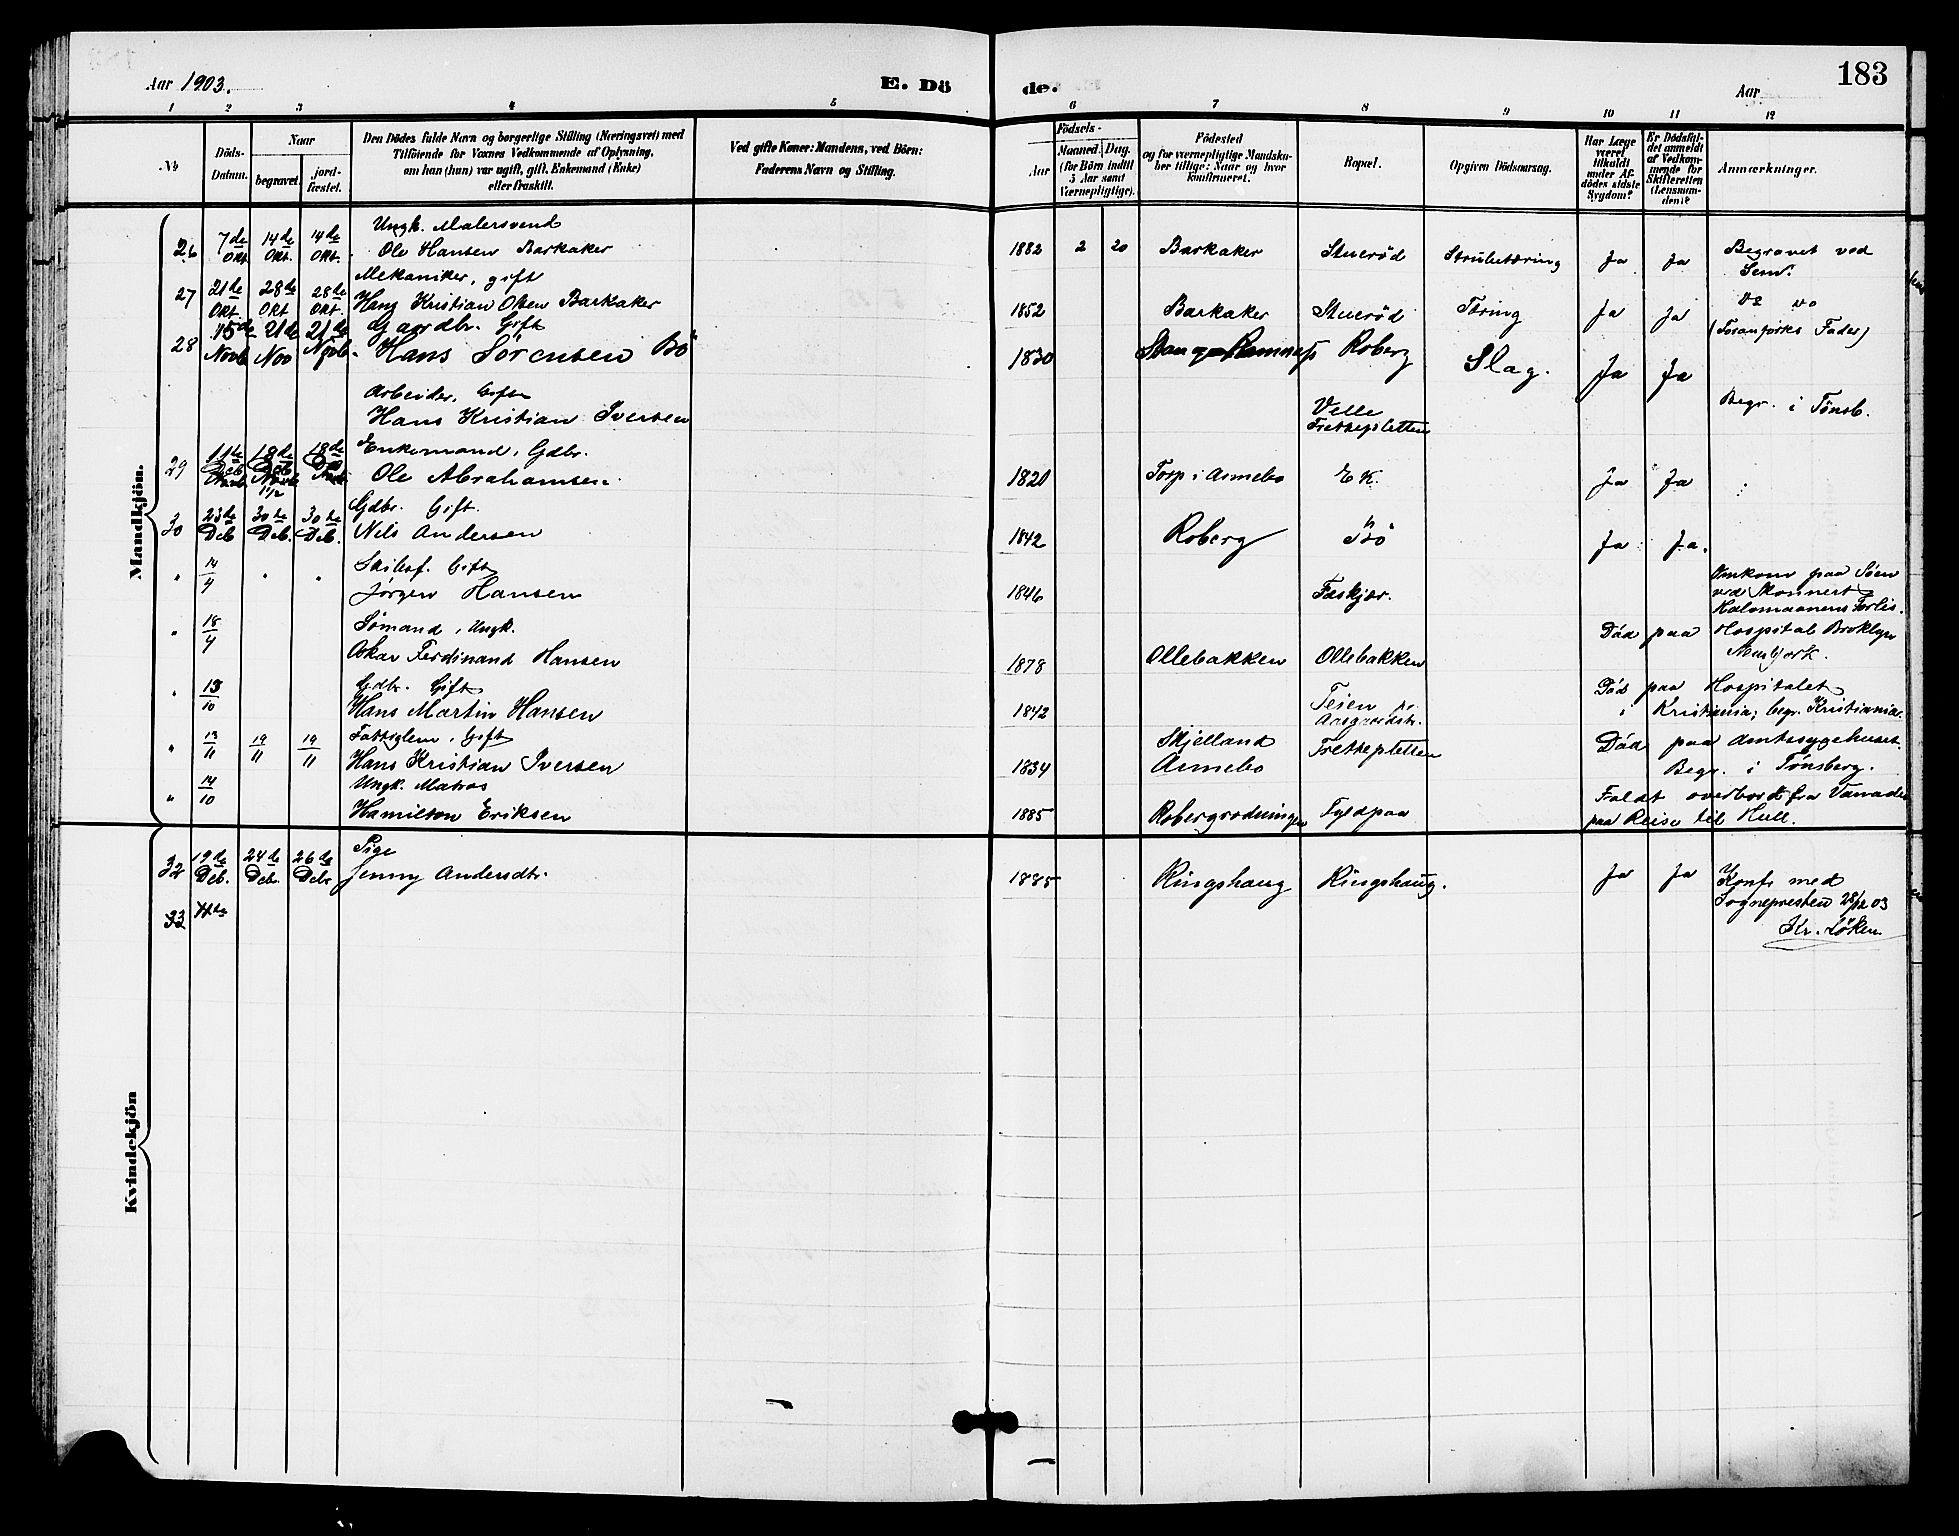 Aar 1903.
E. Dö de.
Aar
183
1 2 3 4 5 6 7 8 9 10 11 12
No
Döds-Datum.
Naar
begravet.
jord-fæstet.
Den Dödes fulde Navn og borgerlige Stilling (Næringsvei) med
Tilföiende for Voxnes Vedkommende af Oplysning,
om han (hun) var ugift, gift, Enkemand (Enke)
eller fraskilt.
Ved gifte Koner: Mandens, ved Börn:
Faderens Navn og Stilling.
Födsels-
Aar
Maaned. Dag.
(for Börn indtil
5 Aar samt
Værnepligtige).
Födested
og for værnepligtige Mandska-
ber tillige: Naar og hvor
konfirmeret.
Bopæl.
Opgiven Dödsaarsag.
Har Læge
været
tilkaldt
under Af-
dödes sidste
Sygdom?
Er Dödsfal-
det anmeldt
af Vedkom-
mende for
Skifteretten
(Lensman-
den)?
Anmærkninger.
Mandkjön.
Ungk. Malersvend
26 7de Okt. 14de Okt. 14de Okt. Ole Hansen Barkaker 1882 2 20 Barkaker Stuerød Strubetæring Ja Ja Begravet ved Sem.
Mekaniker, gift
27 21de Okt. 28de Okt 28de Okt. Hans Kristian Olsen Barkaker 1852 Barkaker Stuerød Tæring Ja Ja do do
Gaardbr. Gift
28 15de Novb 21de Nov 21de Novb. Hans Sörensen Bö 1830 Roberg Slag. Ja Ja Fader)
Arbeider, Gift
Hans Kristian Iversen Velle Begr. i Tönsb.
Enkemand, Gdbr.
29 11de Deb 18de Deb 18de Deb Ole Abrahamsen. 1820 Torp i Arnebo Ek. Ja Ja
Gdbr. Gift.
30 23de Deb 30de Deb. 30de Deb. Nils Andersen 1842 Roberg Bö Ja Ja.
" 14/4 " " Skibsf. Gift
Jörgen Hansen 1846 Omkom paa Söen
ved Skonnert
Forlis.
" 18/4 Sömand, Ungk.
Oskar Ferdinand Hansen 1878 Ollebakken Ollebakken Död paa Hospital Broklyn
" 13/10 Gdbr. Gift
Hans Martin Hansen 1842 Teien pr. Aasgaardstr. Död paa Hospitalet
i Kristiania; begr. Kristiania.
" 13/11 19/11 19/11 Fattiglem, Gift
Hans Kristian Iversen 1834 Skjelland Arnebo Död paa Amtssygehuset.
Begr. i Tönsberg.
" 14/10 Ungk. Matros
Hamilton Eriksen 1885 Fyldpaa Faldt overbord fra Vanadis
paa Reise til Hull.
Kvindekjön
Pige
32 19de Deb. 24de Deb. 26de Deb Jenny Andersdtr. 1885 Ringshaug Ringshaug. Ja Ja Konf. med
Sognepresten 28/12 03
Kr. Löken
33